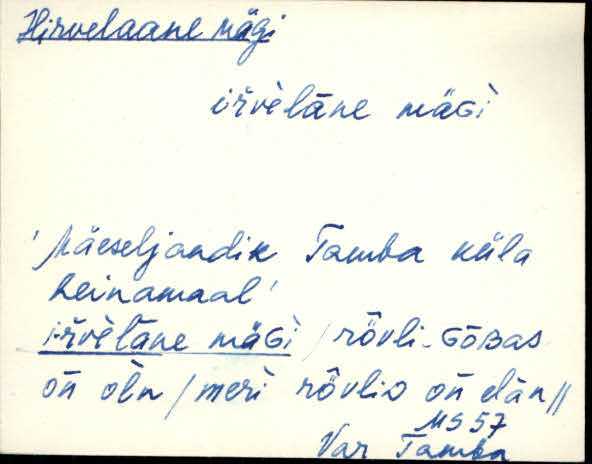 Hirvelaane mägi
iřvèlāne mäɢì
'Mäeseljandik Tamba küla
heinamaal'
iřvèlāne mäɢì / rövli-ɢōʙas
on̄ oln / merì rövlìᴅ on̄ elan //
MS 57
Var Tamba